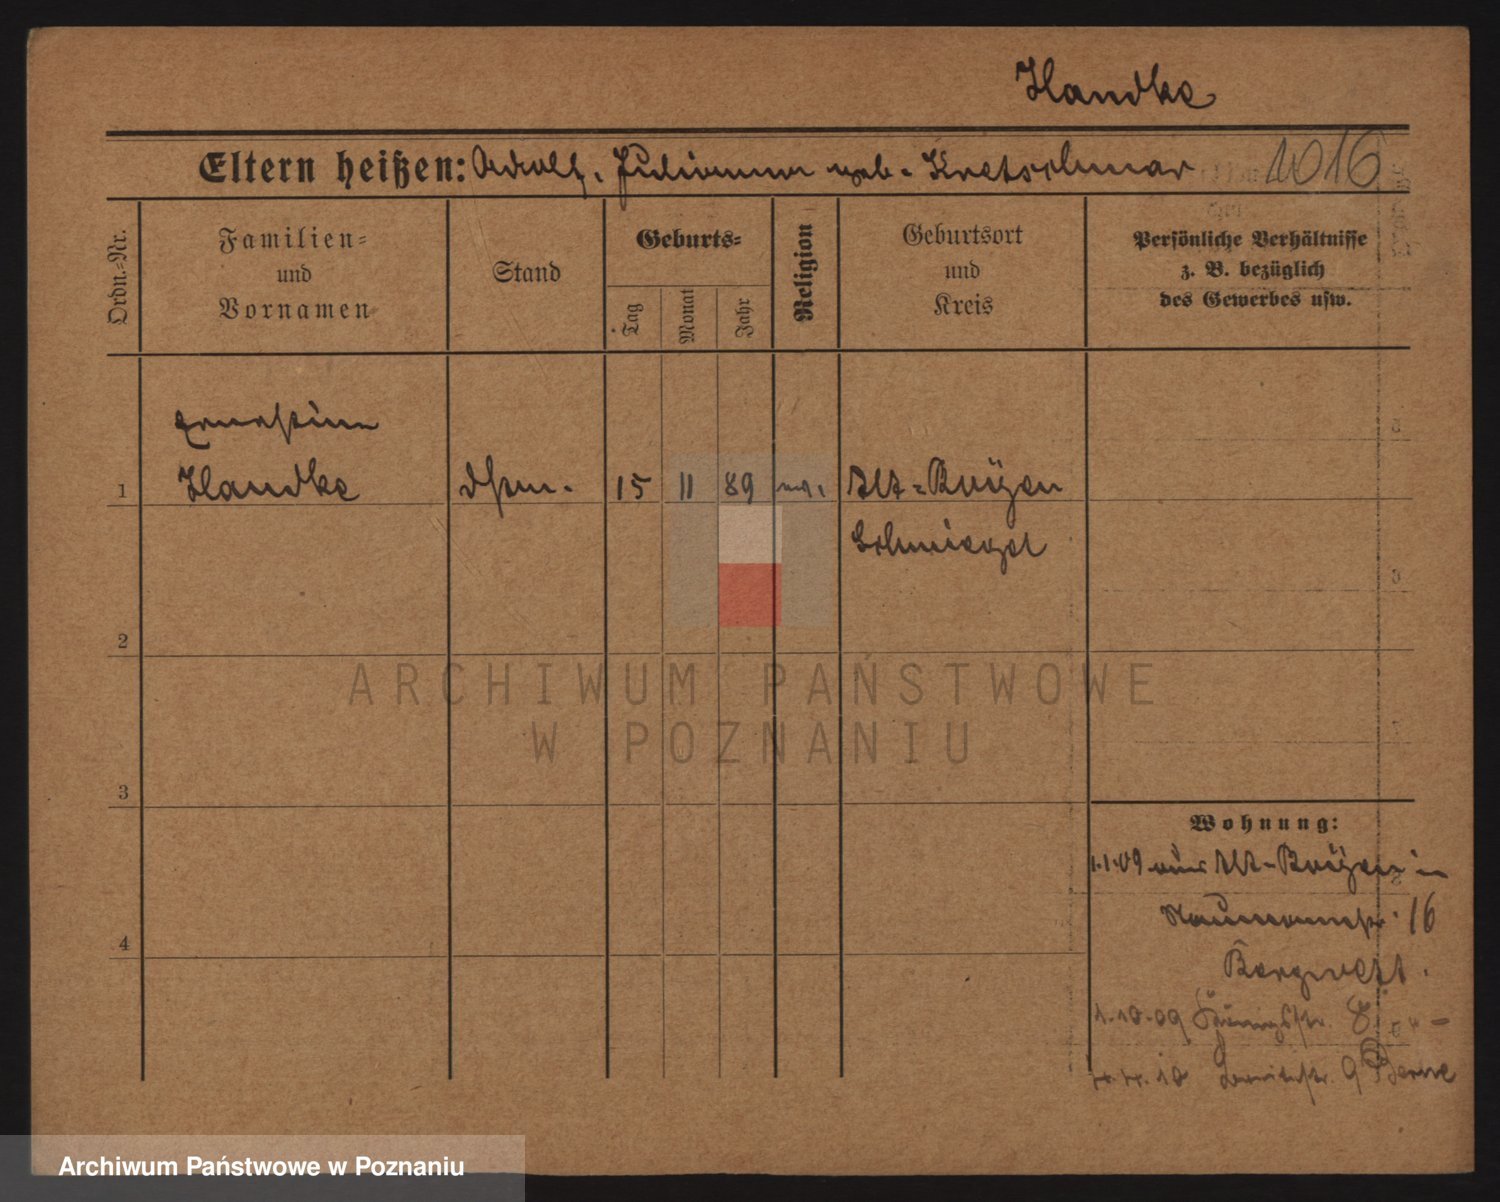 Handke
Eltern heißen: Adolf, Julianna geb. Kretschmar 1016
Ordn.-Nr.
Familien-
und
Vornamen
Stand
Geburts-
Tag
Monat
Jahr
Religion
Geburtsort
und
Kreis
Persönliche Verhältnisse
z. B. bezüglich
des Gewerbes usw.
Ernestine
1 Handke 15 11 89 ev. Alt-Boÿen
Schmiegel
2
ARCHIWUM PAŃSTWOWE
W POZNANIU
3
Wohnung:
1.1.09 aus Alt-Boÿen in
Naumannstr. 16
4
1.10.09 8
4.4.10 9
Archiwum Państwowe w Poznaniu